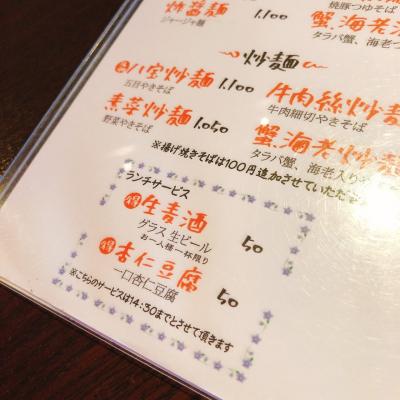 炸醤麺 1.100
ジャージャ麺
焼豚つゆそば
蟹海老
タラバ蟹、海老
炒麺
八宝炒麺 1.100
五目やきそば
素菜炒麺 1.050
野菜やきそば
牛肉絲炒麺
牛肉細切りやきそば
蟹海老炒麺
タラバ蟹、海老入り
※揚げ焼きそばは100円追加させていただ
ランチサービス
得 生麦酒 50
グラス 生ビール
お一人様一杯限り
得 杏仁豆腐 50
一口杏仁豆腐
※こちらのサービスは14:30までとさせて頂きます